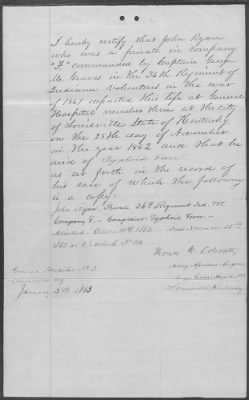 I hereby certify that John Ryan
who was a private in company
commanded by Captain
in the 36th Regiment of
Indiana Volunteers in the war
of 1861 departed this life at General
Hospital number three at the city
of Louisville State of Kentucky
on the 25th day of November
in the year 1862 and that he
died of Typhoid Fever
as set forth in the record of
his case of which the following
is a copy:
John Ryan, Private 36th Regiment Ind. Vol
Company Complaint, Typhoid Fever
Admitted October 1862 Died November 25th
1862 at o'clock
General Hospital No 3
Louisville Ky
January 1863
Louisville, Kentucky